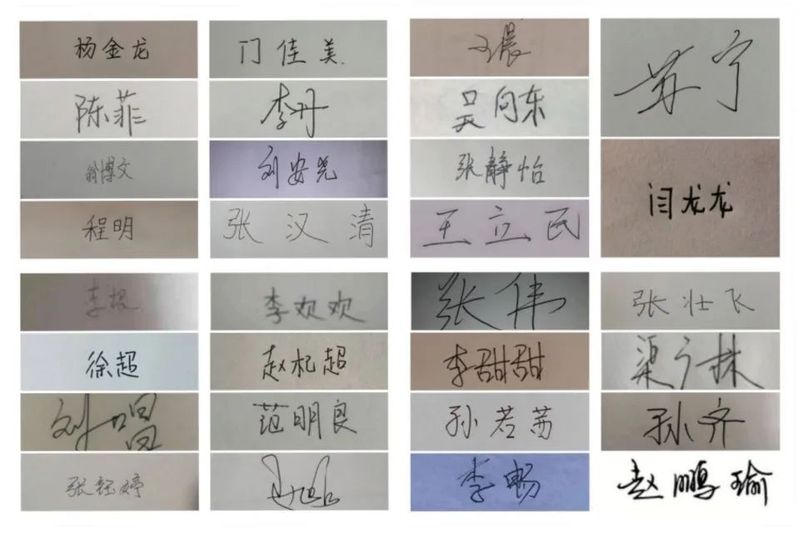 杨金龙
门佳美
王晨
苏宁
陈菲
李丹
吴向东
翁博文
刘安尧
张静怡
闫龙龙
程明
张汉清
王立民
李欢欢
张伟
张壮飞
徐超
赵杞超
李甜甜
梁广林
范明良
孙若茜
孙齐
张钰婷
李畅
赵鹏瑜